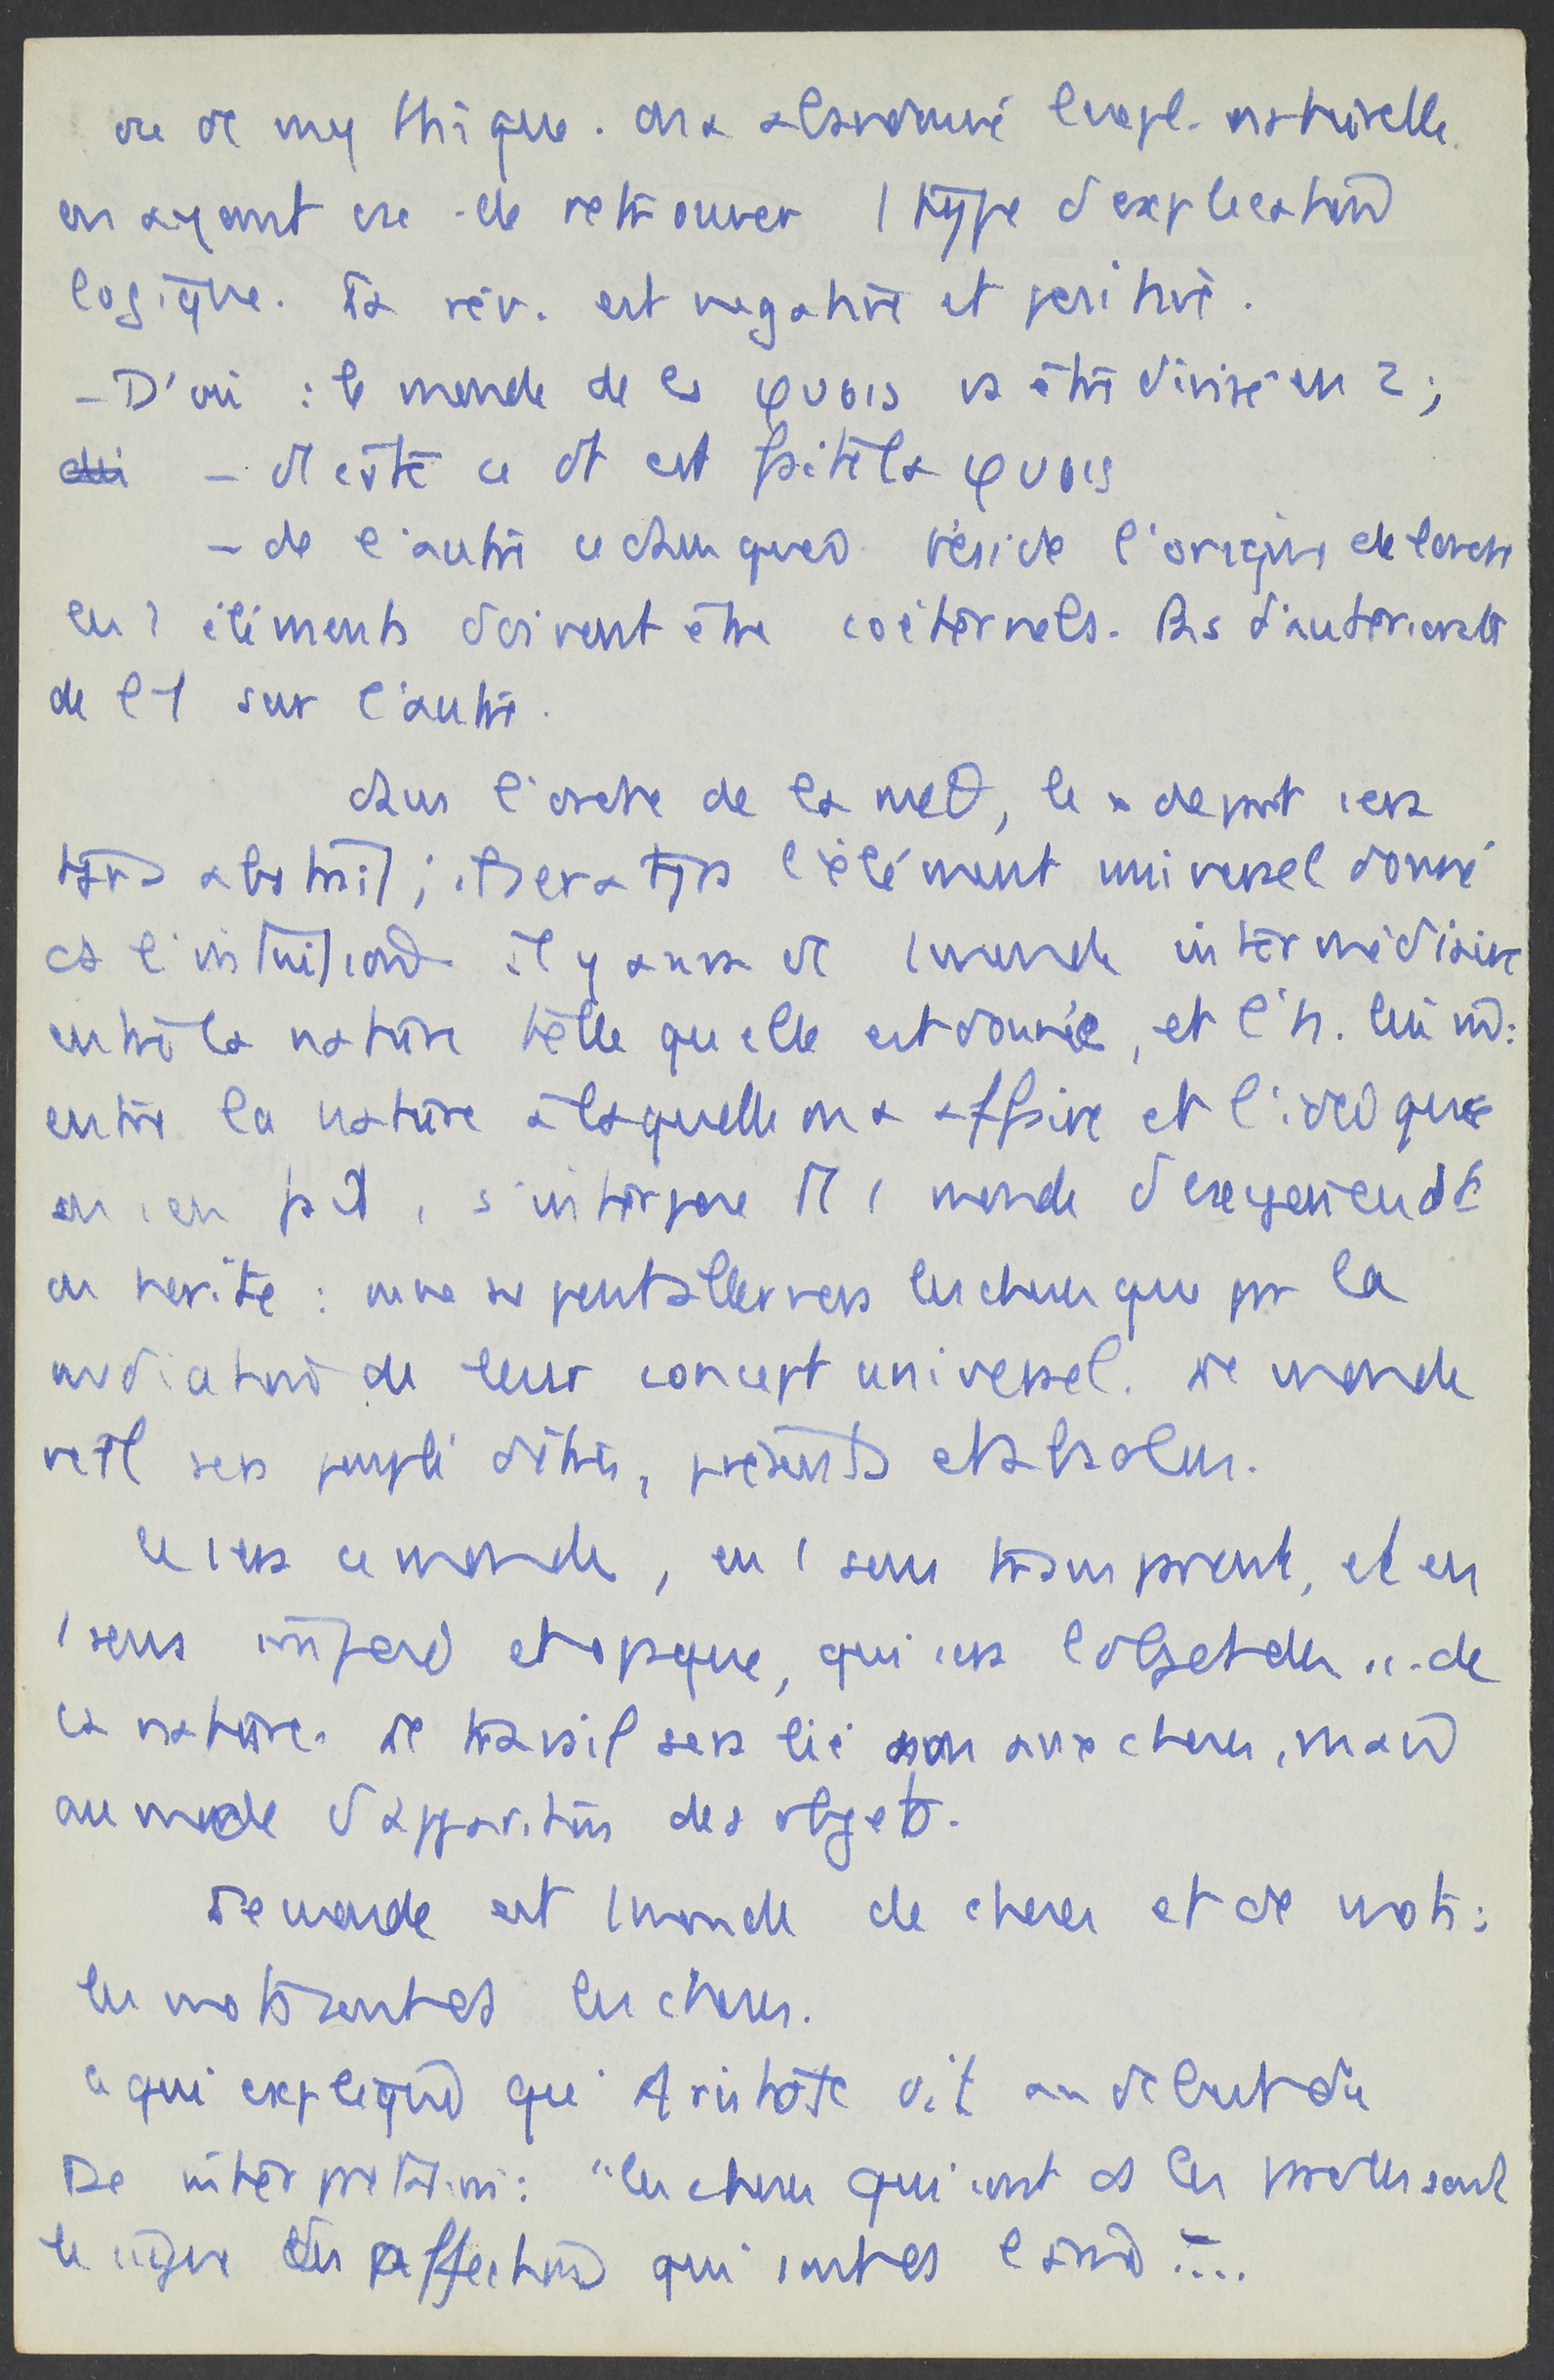 de mythique. On a abandonné l'expl. naturelle
en ayant de retrouver 1 type d'explication
logique. rév. est négative et positive.
- D'où : le monde de la φυσις va être divisé en 2 ;
- d'1 côté ce dt est faite la φυσις
- de l'autre ce dans quoi réside l'origine de l'ordre
Les 2 éléments doivent être coéternels. Pas d'antériorité
de l'1 sur l'autre.
dans l'ordre de la de départ sera
tjrs abstrait ; ce sera tjrs l'élément universel donné
ds l'institution il y aura 1 monde intermédiaire
entre la nature telle qu'elle est donnée, et l'h. lui :
entre la nature à laquelle on a affaire et l'idée que
on s'en fait, s'interpose 1 monde d'expérience
en vérité : on ne peut aller vers les choses que par la
médiation de leur concept universel. monde
réel sera peuplé d'êtres, présents et absolus.
Ce sera ce monde, en 1 sens transparent, et en
1 sens et opaque, qui sera l'objet de
la nature. travail sera lié non aux choses, mais
au mode d'apparition des objets.
monde est 1 monde de choses et de mots :
les mots sont ds les choses.
ce qui explique qu'Aristote dit au début du
De interpretatione : "les choses qui sont ds les paroles sont
le signe des affections qui sont ds l'âme"...